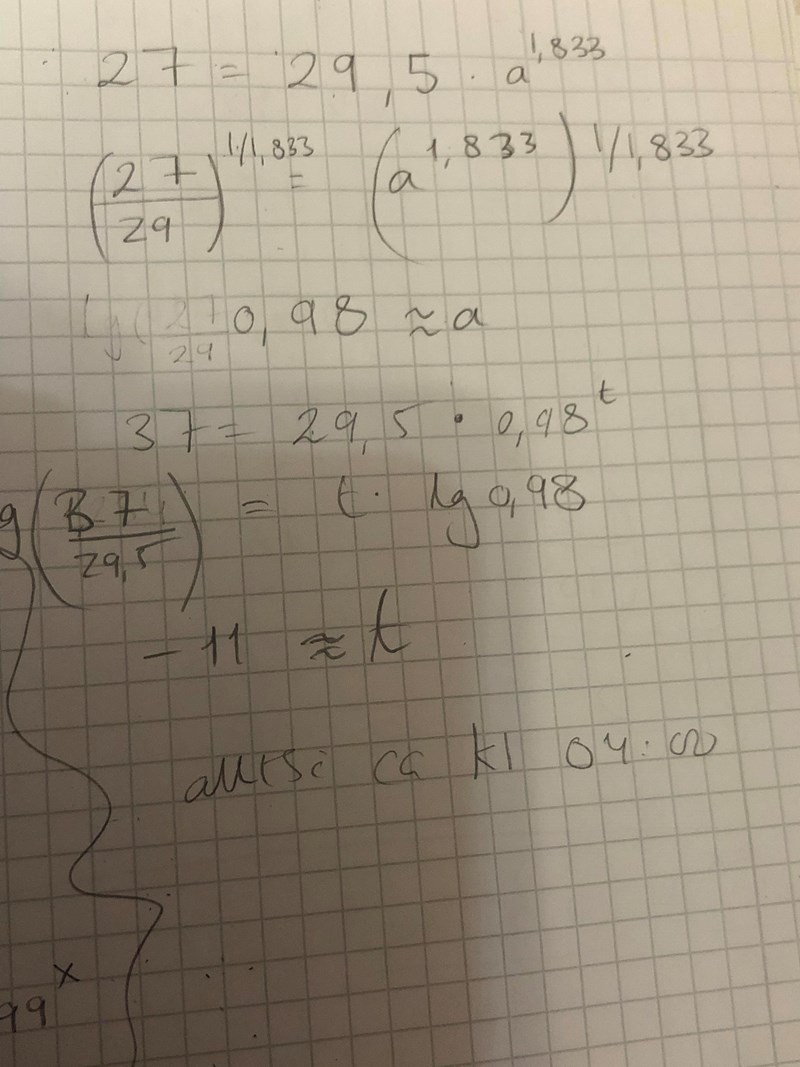 27 = 29,5 · a^1,833
(27/29)^1/1,833 = (a^1,833)^1/1,833
lg(27/29 0,98 ≈ a
37 = 29,5 · 0,98^t
g(37/29,5) = t · lg 0,98
-11 ≈ t
alltså ca kl 04:00
99^x